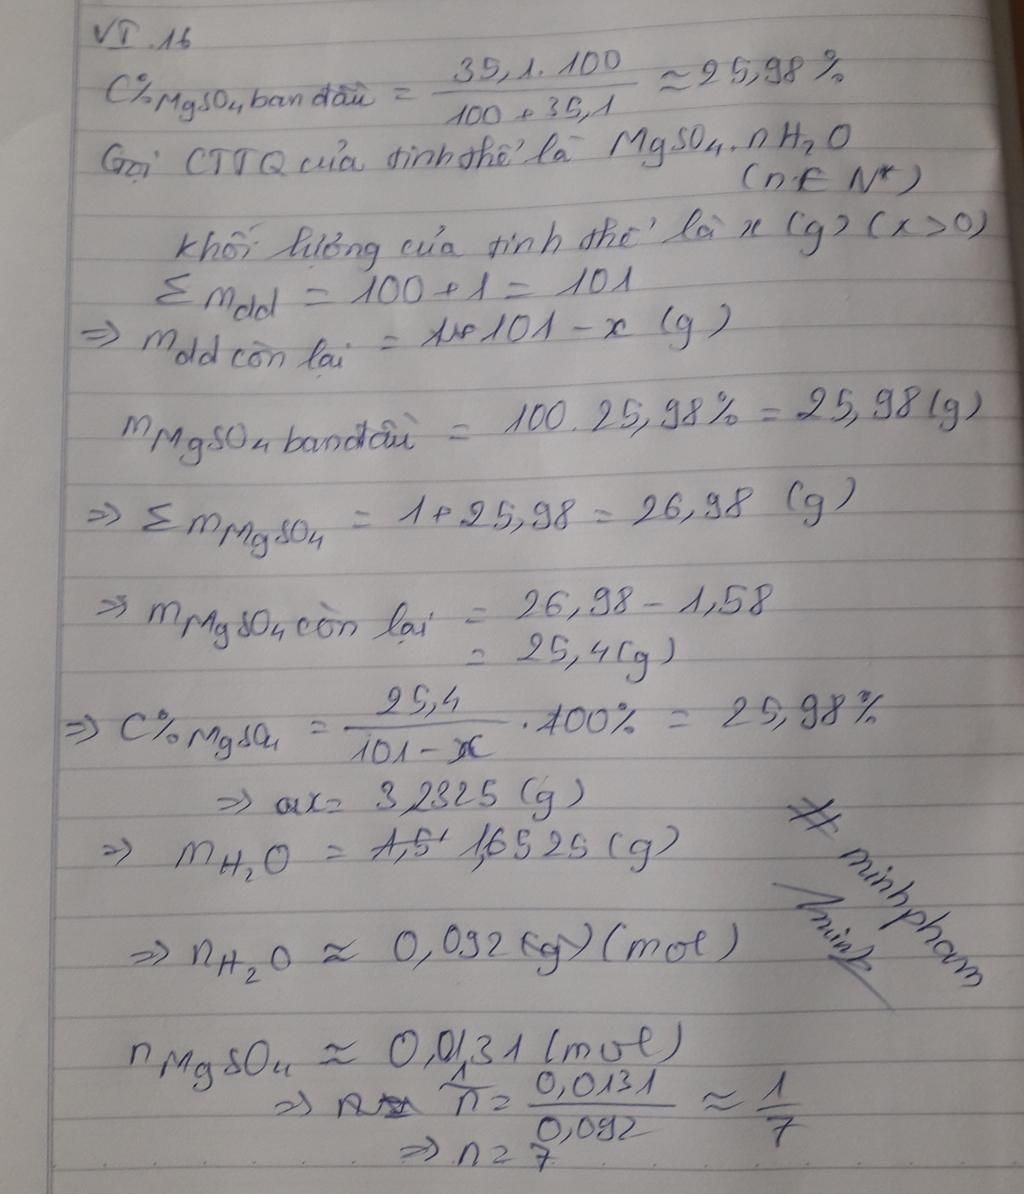 VI.16
C%MgSO4 ban đầu = 35,1.100 / 100+35,1 ≈ 25,98%
Gọi CTTQ của tinh thể là MgSO4.nH2O
(n∈N*)
khối lượng của tinh thể là x (g) (x>0)
Σmdd = 100+1 = 101
=> mdd còn lại = 101-x (g)
mMgSO4 ban đầu = 100.25,98% = 25,98(g)
=> ΣmMgSO4 = 1+25,98 = 26,98 (g)
=> mMgSO4 còn lại = 26,98-1,58
= 25,4(g)
=> C%MgSO4 = 25,4 / 101-x .100% = 25,98%
=> x = 3,2325 (g)
=> mH2O = 1,6525 (g)
# minhpham
minh
=> nH2O ≈ 0,092 (mol)
nMgSO4 ≈ 0,0131 (mol)
=> 1/n = 0,0131 / 0,092 ≈ 1/7
=> n = 7